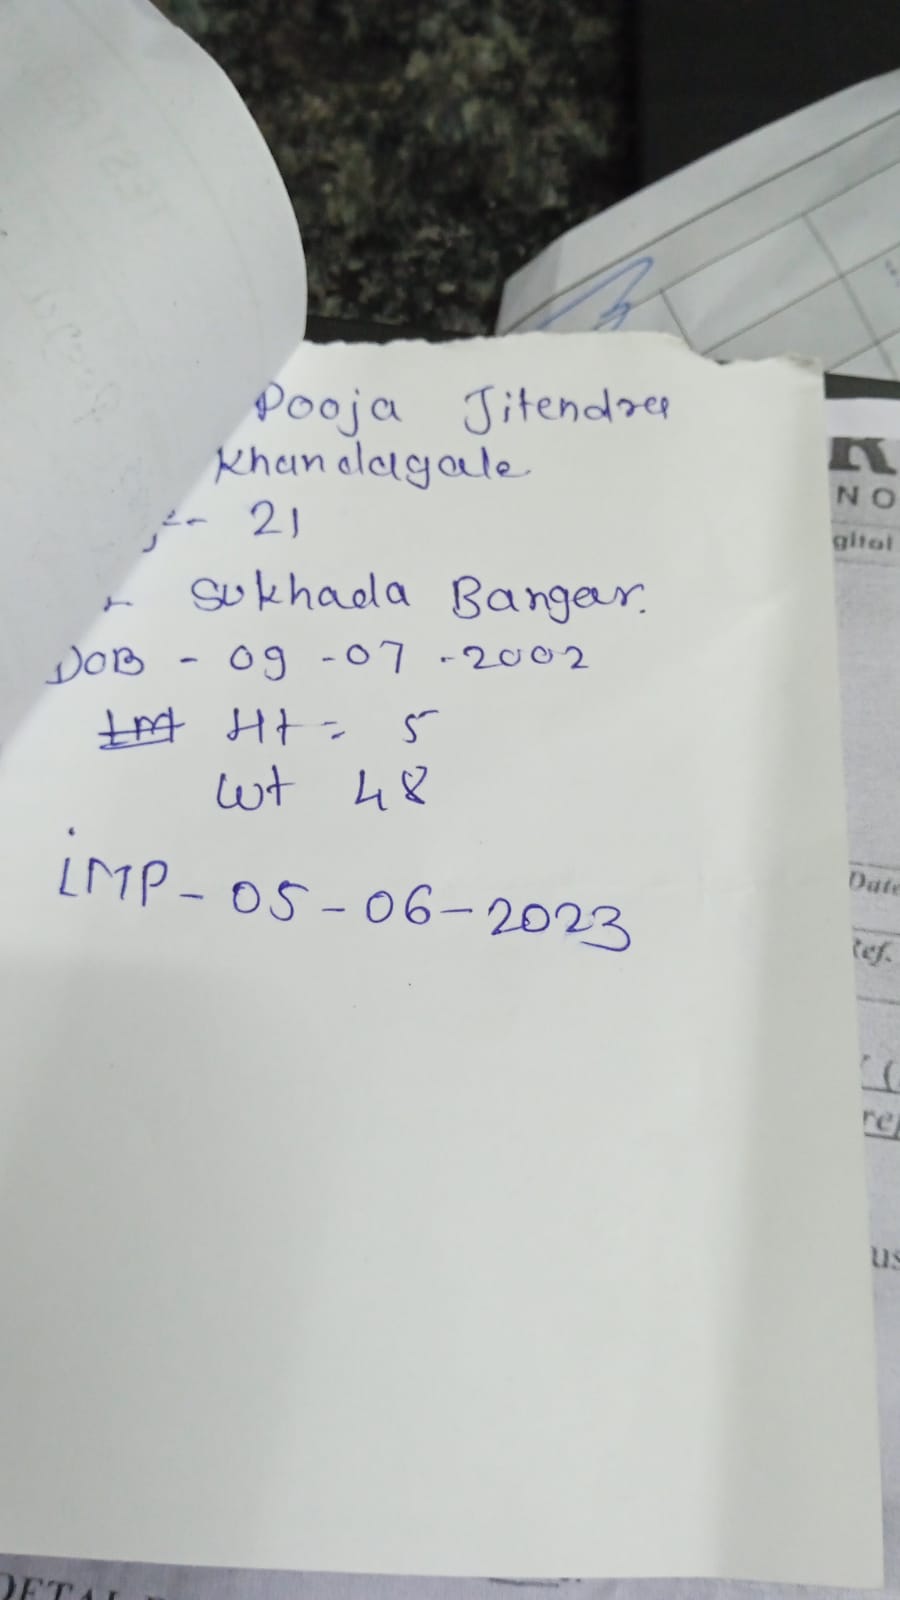 Pooja Jitendra
Khandagale
21
Sukhada Bangar.
DOB - 09-07-2002
Ht = 5
wt 48
LMP - 05-06-2023
R
NO
gital
Date
Ref.